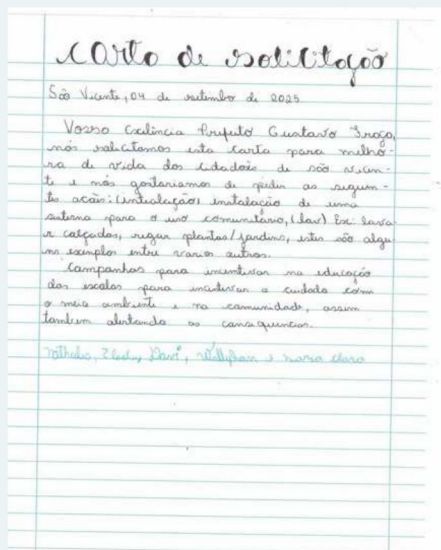 carta de solicitação
São Vicente, 04 de setembro de 2025
Vossa Exelência Prefeito Gustavo
nós solicitamos esta carta para melho-
ra de vida dos cidadois de são vicen-
te e nós gostariamos de pedir as seguin-
tes instalação de uma
para o uso comunitário, (lav) Ex: lava-
r calçadas, regar plantas/jardins, estes são algu-
ns exemplos entre varios outros.
Campanhas para incentivar na educação
das escolas para incentivar o cuidado com
o meio ambiente e na comunidade, assim
tambem alertando as consequencias.
Davi, e maria clara